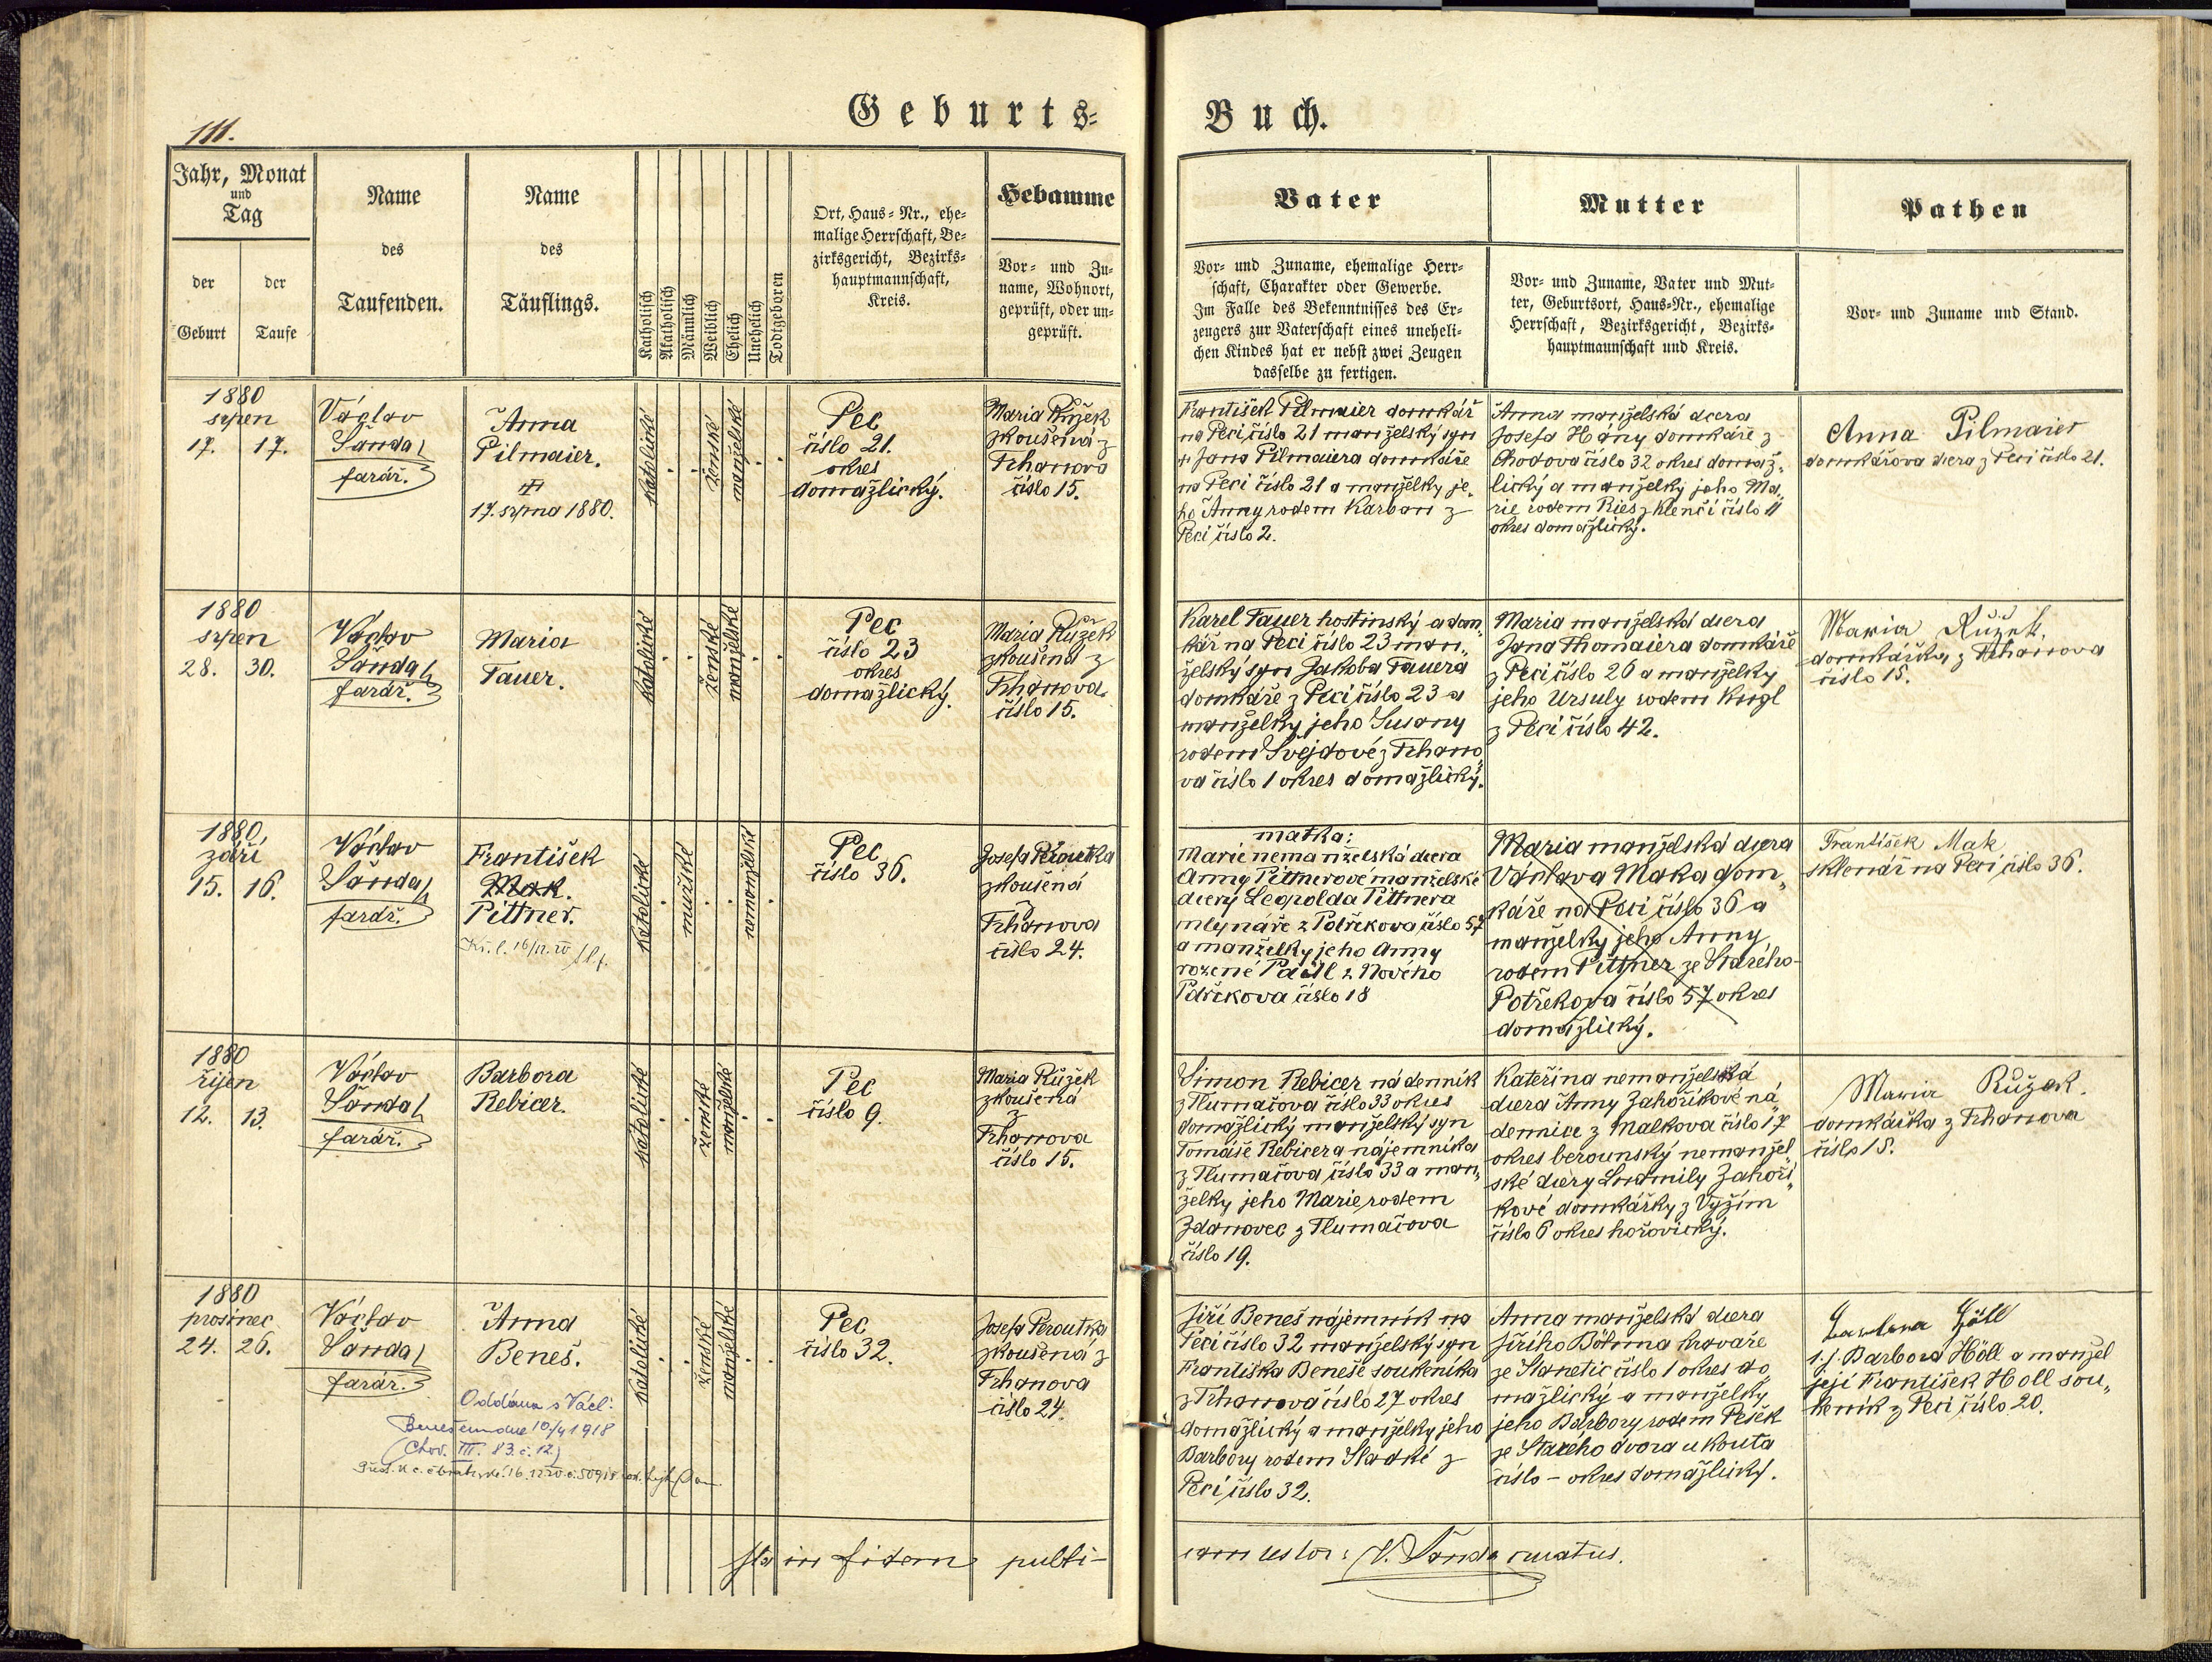 Geburts=
Buch.
111.
Jahr, Monat
und
Tag
der
Geburt
der
Taufe
Name
des
Taufenden.
Name
des
Täuflings.
Katholisch
Akatholisch
Männlich
Weiblich
Ehelich
Unehelich
Todtgeboren
Ort, Haus=Nr., ehe=
malige Herrschaft, Be=
zirksgericht, Bezirks=
hauptmannschaft,
Kreis.
Hebamme
Vor= und Zu=
name, Wohnort,
geprüft, oder un=
geprüft.
Vater
Vor= und Zuname, ehemalige Herr=
schaft, Charakter oder Gewerbe.
Im Falle des Bekenntnisses des Er=
zeugers zur Vaterschaft eines uneheli=
chen Kindes hat er nebst zwei Zeugen
dasselbe zu fertigen.
Mutter
Vor= und Zuname, Vater und Mut=
ter, Geburtsort, Haus=Nr., ehemalige
Herrschaft, Bezirksgericht, Bezirks=
hauptmannschaft und Kreis.
Pathen
Vor= und Zuname und Stand.
1880
srpen
17. 17.
Václav
Šanda
farář.
Anna
Pilmaier.
17. srpna 1880.
katolické
ženské
manželské
Pec
číslo 21.
okres
domažlický.
Maria Růžek
zkoušená z
Trhanova
číslo 15.
František Pilmaier domkář
na Peci číslo 21 manželský syn
Jana Pilmaiera domkáře
na Peci číslo 21 a manželky je„
ho Anny rodem Karban z
Peci číslo 2.
Anna manželská dcera
Josefa Hány domkáře z
Chodova číslo 32 okres domaž„
lický a manželky jeho Ma„
rie rodem Ries z Klenčí číslo 11
okres domažlický.
Anna Pilmaier
domkářova dcera z Peci číslo 21.
1880
srpen
28. 30.
Václav
Šanda
farář.
Maria
Tauer.
katolické
ženské
manželské
Pec
číslo 23
okres
domažlický.
Maria Růžek
zkoušená z
Trhanova
číslo 15.
Karel Tauer hostinský a dom„
kář na Peci číslo 23 man„
želský syn Jakoba Tauera
domkáře z Peci číslo 23 a
manželky jeho Susany
rodem Švejdové z Trhano„
va číslo 1 okres domažlický.
Maria manželská dcera
Jana Thomaiera domkáře
z Peci číslo 26 a manželky
jeho Ursuly rodem Kugl
z Peci číslo 42.
Maria Růžek,
domkářka z Trhanova
číslo 15.
1880,
září
15. 16.
Václav
Šanda
farář.
František
Mak.
Pittner.
katolické
mužské
nemanželské
Pec
číslo 36.
Josefa Peroutka
zkoušená
z
Trhanova
číslo 24.
matka:
Marie nemanželská dcera
Anny Pittnerové manželské
dcery Leopolda Pittnera
mlynáře z Potřekova číslo 57
a manželky jeho Anny
rozené Pactl z Nového
Pořekova číslo 18
Maria manželská dcera
Václava Maka dom„
káře na Peci číslo 36 a
manželky jeho Anny
rodem Pittner ze Starého
Potřekova číslo 57 okres
domažlický.
František Mak
sklenář na Peci číslo 36.
1880
říjen
12. 13.
Václav
Šanda
farář.
Barbora
Rebicer.
katolické
ženské
manželské
Pec
číslo 9.
Maria Růžek
zkoušená
z
Trhanova
číslo 15.
Simon Rebicer nádenník
z Tlumačova číslo 33 okres
domažlický manželský syn
Tomáše Rebicera nájemníka
z Tlumačova číslo 33 a man„
želky jeho Marie rodem
Zdanovec z Tlumačova
číslo 19.
Kateřina nemanželská
dcera Anny Zahoříkové ná„
dennice z Malkova číslo 17
okres berounský nemanžel„
ské dcery Ludmily Zahoří„
kové domkářky z Vyžím
číslo 6 okres hořovický.
Maria Růžek.
domkářka z Trhanova
číslo 15.
1880
prosinec
24. 26.
Václav
Šanda
farář.
Anna
Beneš.
Oddána s Václ.
Benešem dne 10/4 1918
(Chod. III. 83. č. 12.)
katolické
ženské
manželské
Pec
číslo 32.
Josefa Peroutka
zkoušená z
Trhanova
číslo 24.
Jiří Beneš nájemník na
Peci číslo 32 manželský syn
Františka Beneše soukeníka
z Trhanova číslo 27 okres
domažlický a manželky jeho
Barbory rodem Sladké z
Peci číslo 32.
Anna manželská dcera
Jiřího Böhma kraváře
ze Stanětic číslo 1 okres do„
mažlický a manželky
jeho Barbory rodem Pešek
ze Starého dvora u Kouta
číslo – okres domažlický.
Barbora Höll
t. j. Barbora Höll a manžel
její František Holl sou„
keník z Peci číslo 20.
Ita in fidem publi-
cam testor: V. Šanda curatus.